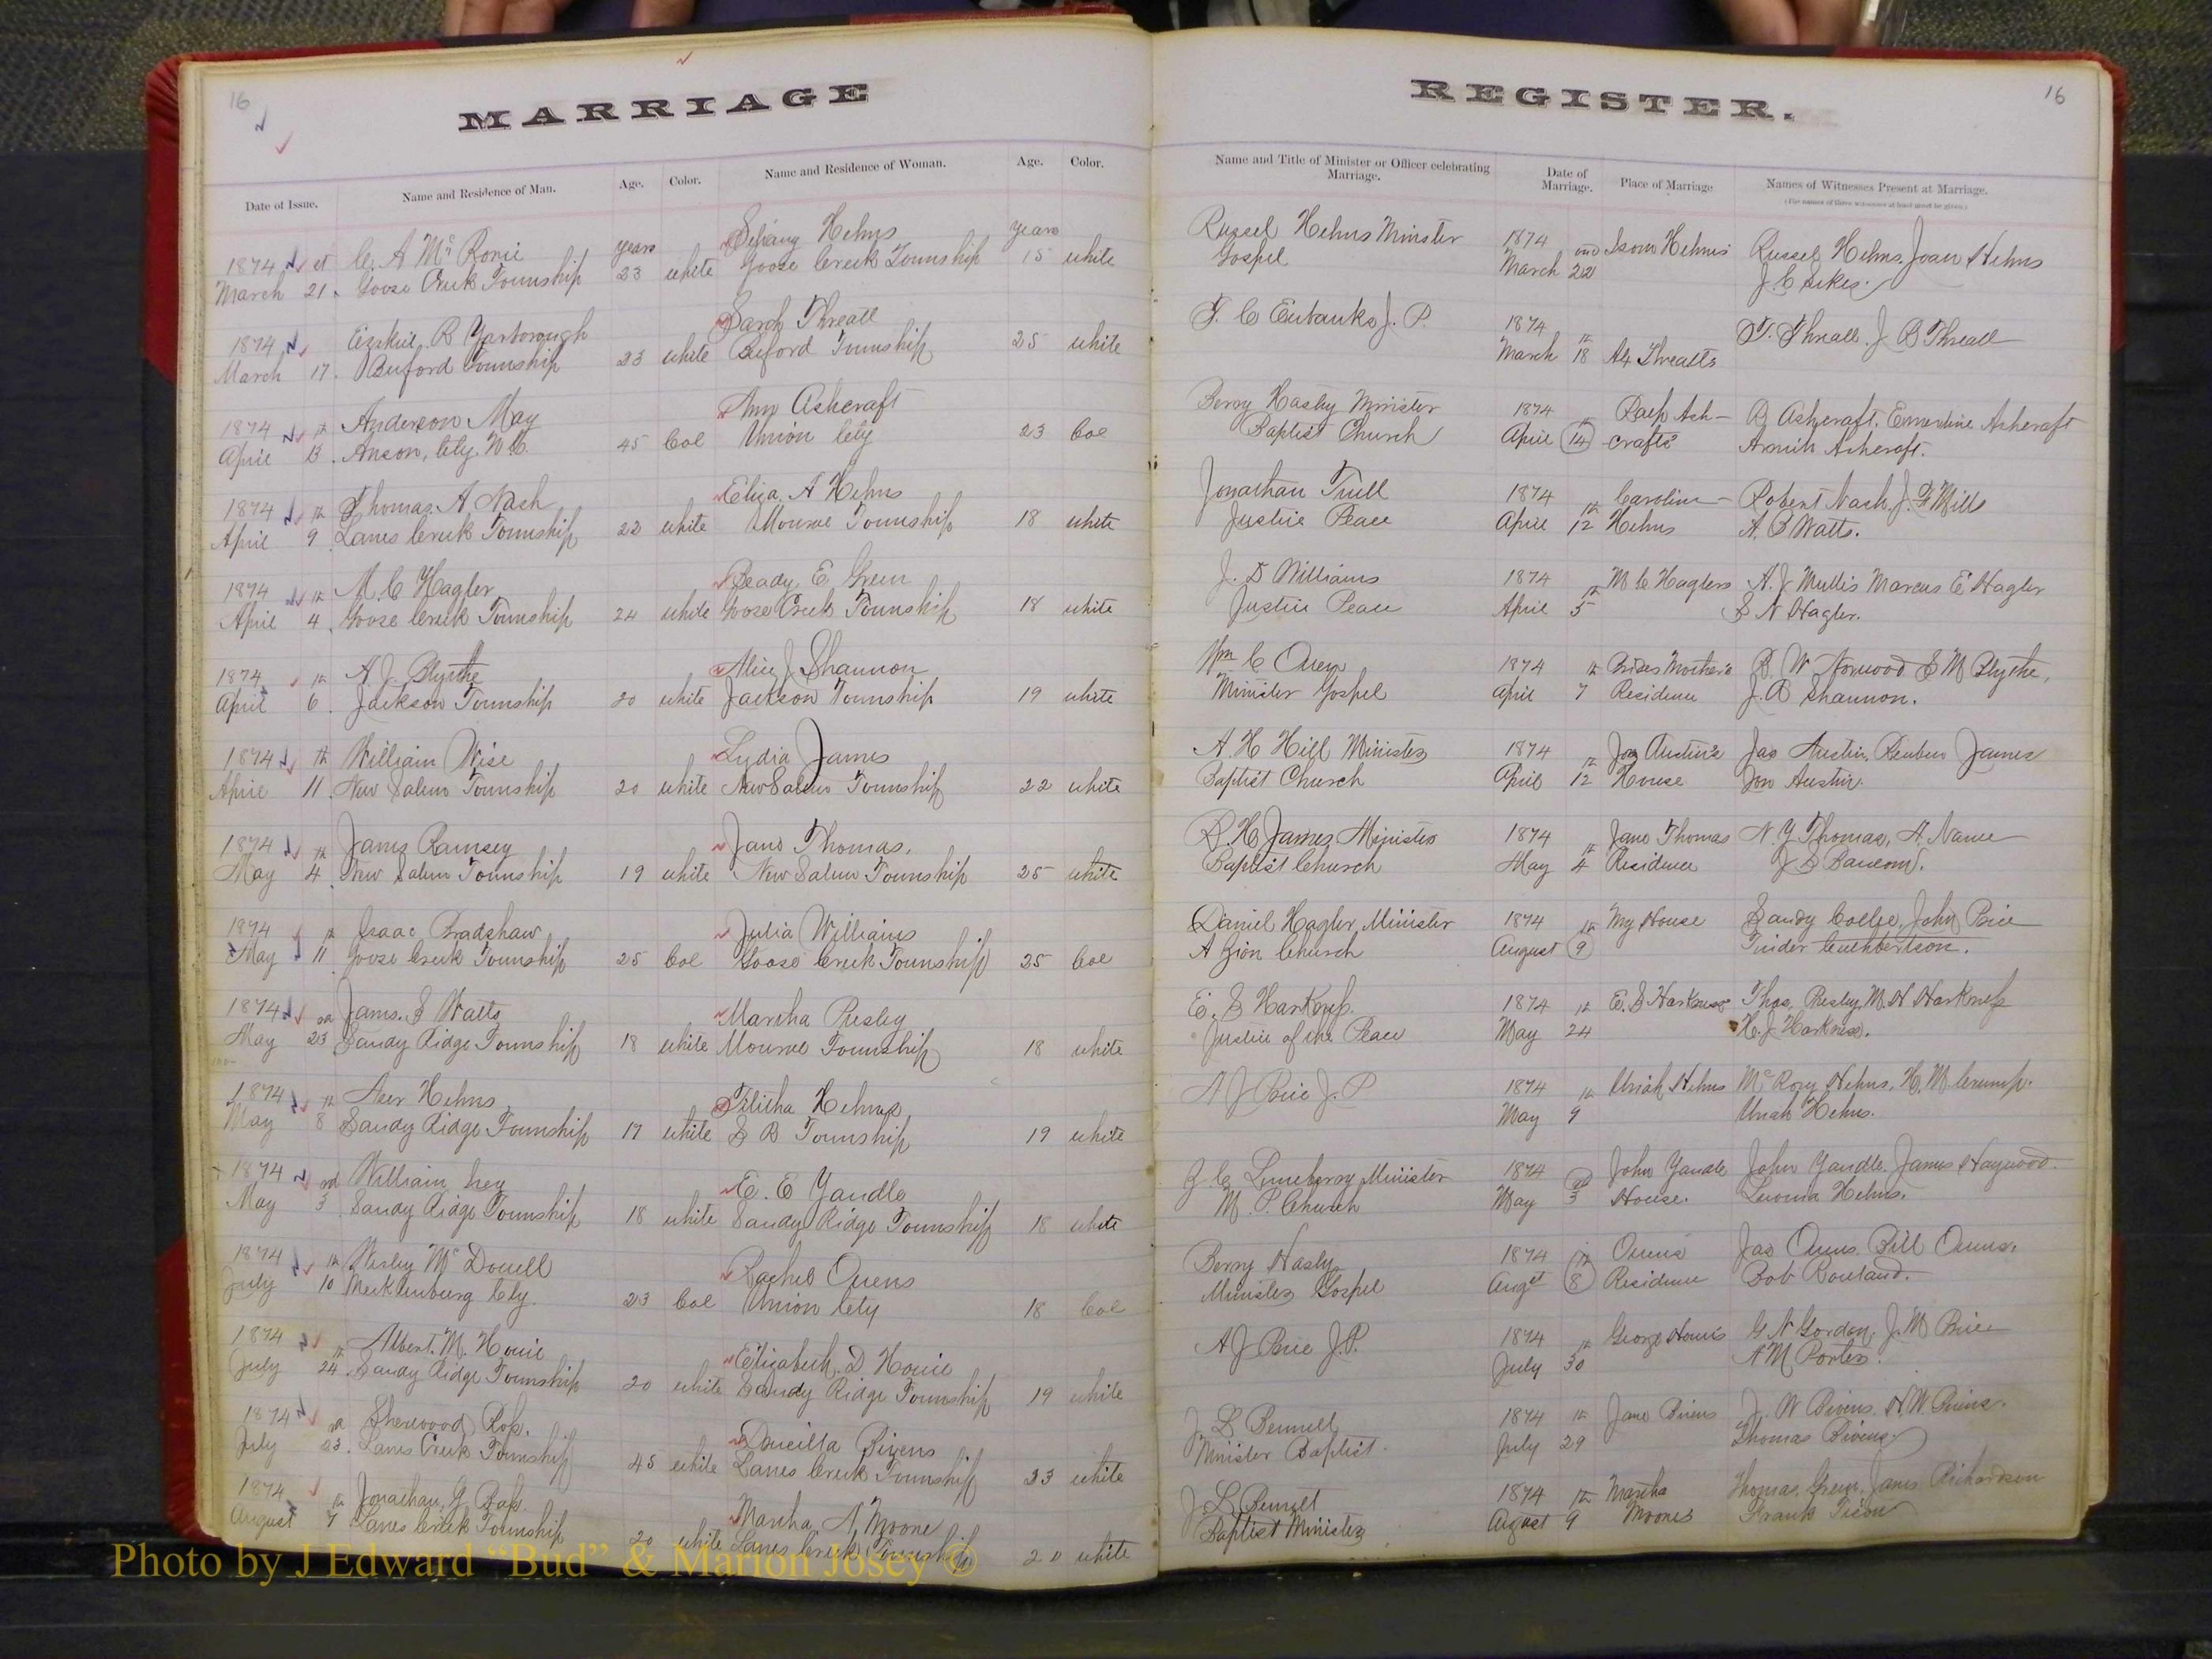 16
MARRIAGE
Date of Issue. Name and Residence of Man. Age. Color. Name and Residence of Woman. Age. Color.
1874 C. A McRorie years Helms years
March 21st Goose Creek Township 23 white Goose Creek Township 15 white
1874 Ezekiel R Yarborough Sarah Threatt
March 17 Buford Township 23 white Buford Township 25 white
1874 th Anderson May Ann Ashcraft
April 13 Anson, Cty. N.C. 45 Col Union Cty 23 Col
1874 th Thomas. A. Nash Eliza. A Helms
April 9 Lanes Creek Township 22 white Monroe Township 18 white
1874 th M. C Hagler Ready. E. Green
April 4 Goose Creek Township 24 white Goose Creek Township 18 white
1874 th A. J. Blythe Alice J Shannon
April 6 Jackson Township 20 white Jackson Township 19 white
1874 th William Wise Lydia James
April 11 New Salem Township 20 white New Salem Township 22 white
1874 th James Ramsey Jane Thomas.
May 4 New Salem Township 19 white New Salem Township 25 white
1874 th Isaac Bradshaw Julia Williams
May 11 Goose Creek Township 25 Col Goose Creek Township 25 Col
1874 rd James. S Watts Martha Presley
May 23 Sandy Ridge Township 18 white Monroe Township 18 white
1874 th Helms Helms
May 8 Sandy Ridge Township 17 white S R Township 19 white
1874 rd William Ivey E. E Yandle
May 3 Sandy Ridge Township 18 white Sandy Ridge Township 18 white
1874 th Wesley McDowell Rachel Owens
July 10 Mecklenburg Cty. 23 Col Union Cty 18 Col
1874 th Albert. M. Howie Elizabeth. D Howie
July 24 Sandy Ridge Township 20 white Sandy Ridge Township 19 white
1874 rd Sherwood Ross. Drucilla Bivens
July 23 Lanes Creek Township 45 white Lanes Creek Township 33 white
1874 th Jonathan. G. Ross. Martha A, Moore
August 7 Lanes Creek Township 20 white Lanes Creek Township 20 white
REGISTER. 16
Name and Title of Minister or Officer celebrating Marriage. Date of Marriage. Place of Marriage Names of Witnesses Present at Marriage.
(The names of three witnesses at least must be given.)
Russel Helms Minister 1874 Isom Helms' Russel Helms. Joan Helms
Gospel March 22nd J. C Sikes.
T. C Eubanks J. P. 1874 T. Threatt. J B Threatt
March 18th At Threatts
Berry Hasty Minister 1874 Ralf Ash- R Ashcraft. Emerline Ashcraft
Baptist Church April 14th crafts Ashcraft.
Jonathan Trull 1874 Caroline Robert Nash. J. F Mills
Justice Peace April 12th Helms A. B Watts.
J. D Williams 1874 M C Haglers A. J Mullis Marcus E Hagler
Justice Peace April 5th S N Hagler.
Wm C Owen 1874 Brides Mother's R. W Norwood S M Blythe,
Minister Gospel April 7th Residence J. R Shannon.
A. H Hill Minister 1874 Jas Austin's Jas Austin, Reuben James
Baptist Church April 12th House Jon Austin.
R. H James. Minister 1874 Jane Thomas N. Y Thomas, A. Nance
Baptist Church May 4th Residence J. D Baucom.
Daniel Hagler Minister 1874 My House Sandy John Price
A Zion Church August 9th Cuthbertson.
E. S Harkness. 1874 E. S Harkness Thos. Presley, M. H Harkness
Justice of the Peace May 24th H. J. Harkness.
A J Price J. P 1874 Uriah Helms McRory Helms. H. M Crump.
May 9th Uriah Helms.
J. C Lineberry Minister 1874 John Yandle John Yandle. James Haywood
M. P. Church May 3rd House. Helms.
Berry Hasty 1874 Owens Jas Owens. Bill Owens.
Minister Gospel Augst 8th Residence Bob Rowland.
A J Price J.P. 1874 George Howies G N Gordon, J. M Price
July 30th A M Porter.
J. L Bennett 1874 Jane Bivens J. W Bivens. H. W. Bivens.
Minister Baptist. July 29th Thomas Bivens
J. L Bennett 1874 Martha Thomas Green, James Richardson
Baptist Minister August 9th Moores Frank Tison
Photo by J Edward "Bud" & Marion Josey ©